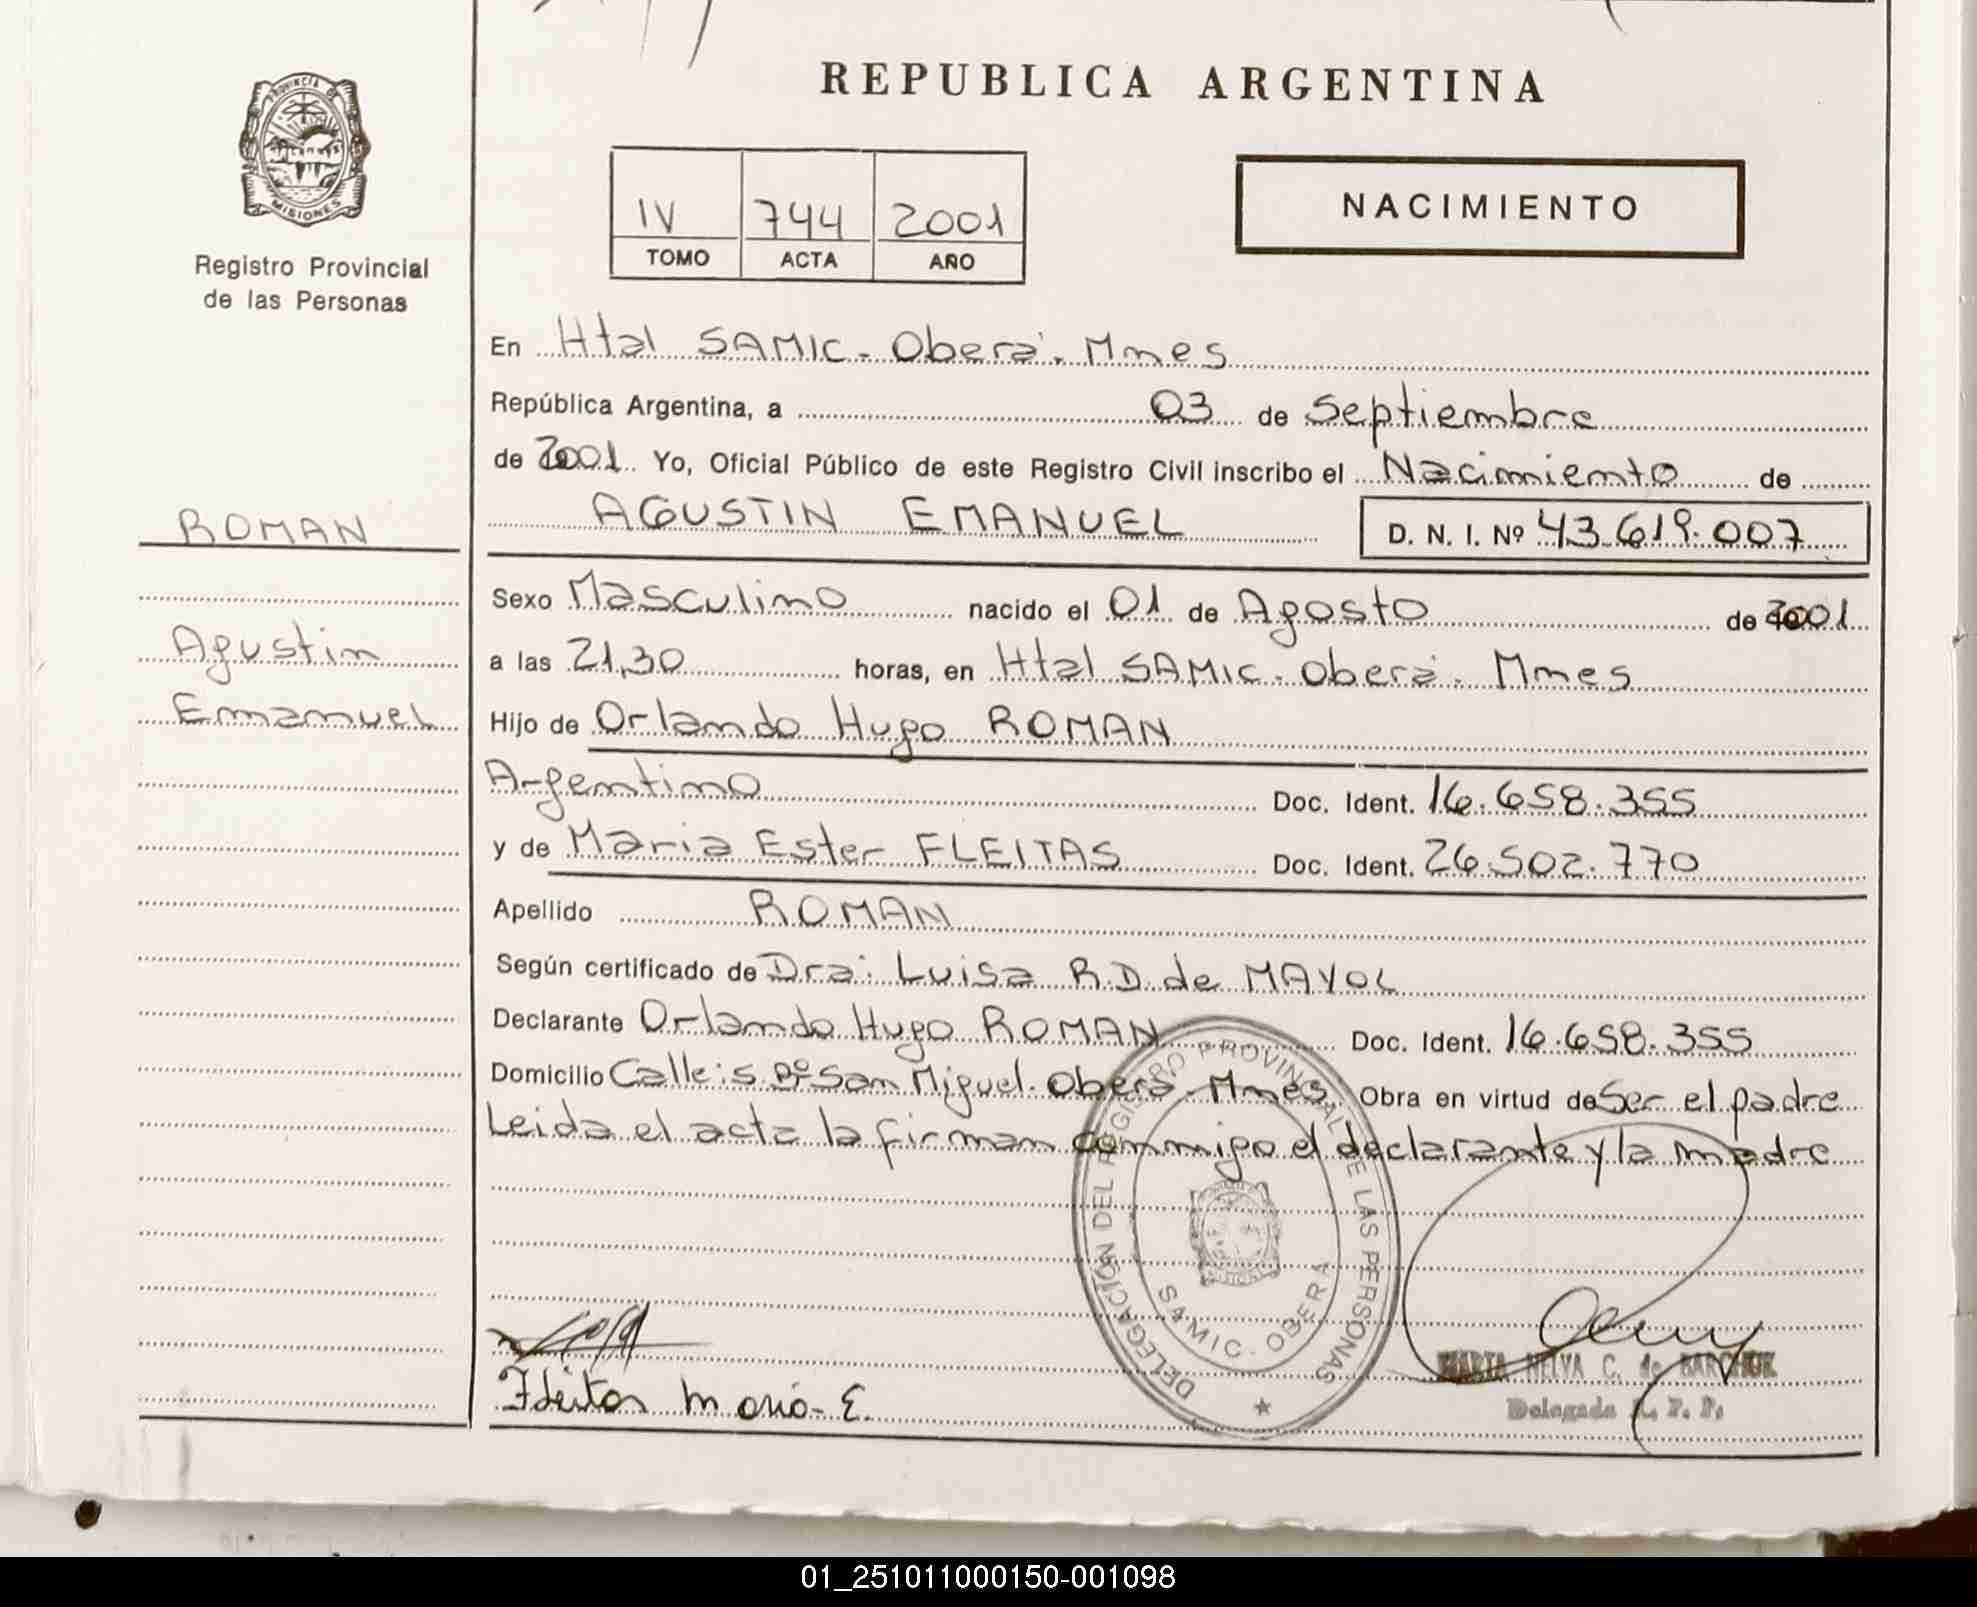 REPUBLICA ARGENTINA
PROVINCIA DE
MISIONES
Registro Provincial
de las Personas
IV 744 2001
TOMO ACTA AÑO
NACIMIENTO
En Htal SAMIC - Oberá - Mnes
República Argentina, a 03 de Septiembre
de 2001 Yo, Oficial Público de este Registro Civil inscribo el Nacimiento de
AGUSTIN EMANUEL D. N. I. Nº 43.619.007
ROMAN
Agustin
Emanuel
Sexo Masculino nacido el 01 de Agosto de 2001
a las 21,30 horas, en Htal SAMIC - Oberá - Mnes
Hijo de Orlando Hugo ROMAN
Argentino Doc. Ident. 16.658.355
y de Maria Ester FLEITAS Doc. Ident. 26.502.770
Apellido ROMAN
Según certificado de Dra: Luisa R.D. de MAYOL
Declarante Orlando Hugo ROMAN Doc. Ident. 16.658.355
Domicilio Calle: s. Bº San Miguel. Oberá - Mnes. Obra en virtud de Ser el padre
Leida el acta la firman conmigo el declarante y la madre
DELEGACIÓN DEL REGISTRO PROVINCIAL DE LAS PERSONAS
SAMIC - OBERA
Fleitas Maria E.
MARTA NELVA C. de
Delegada R. P. P.
01_251011000150-001098